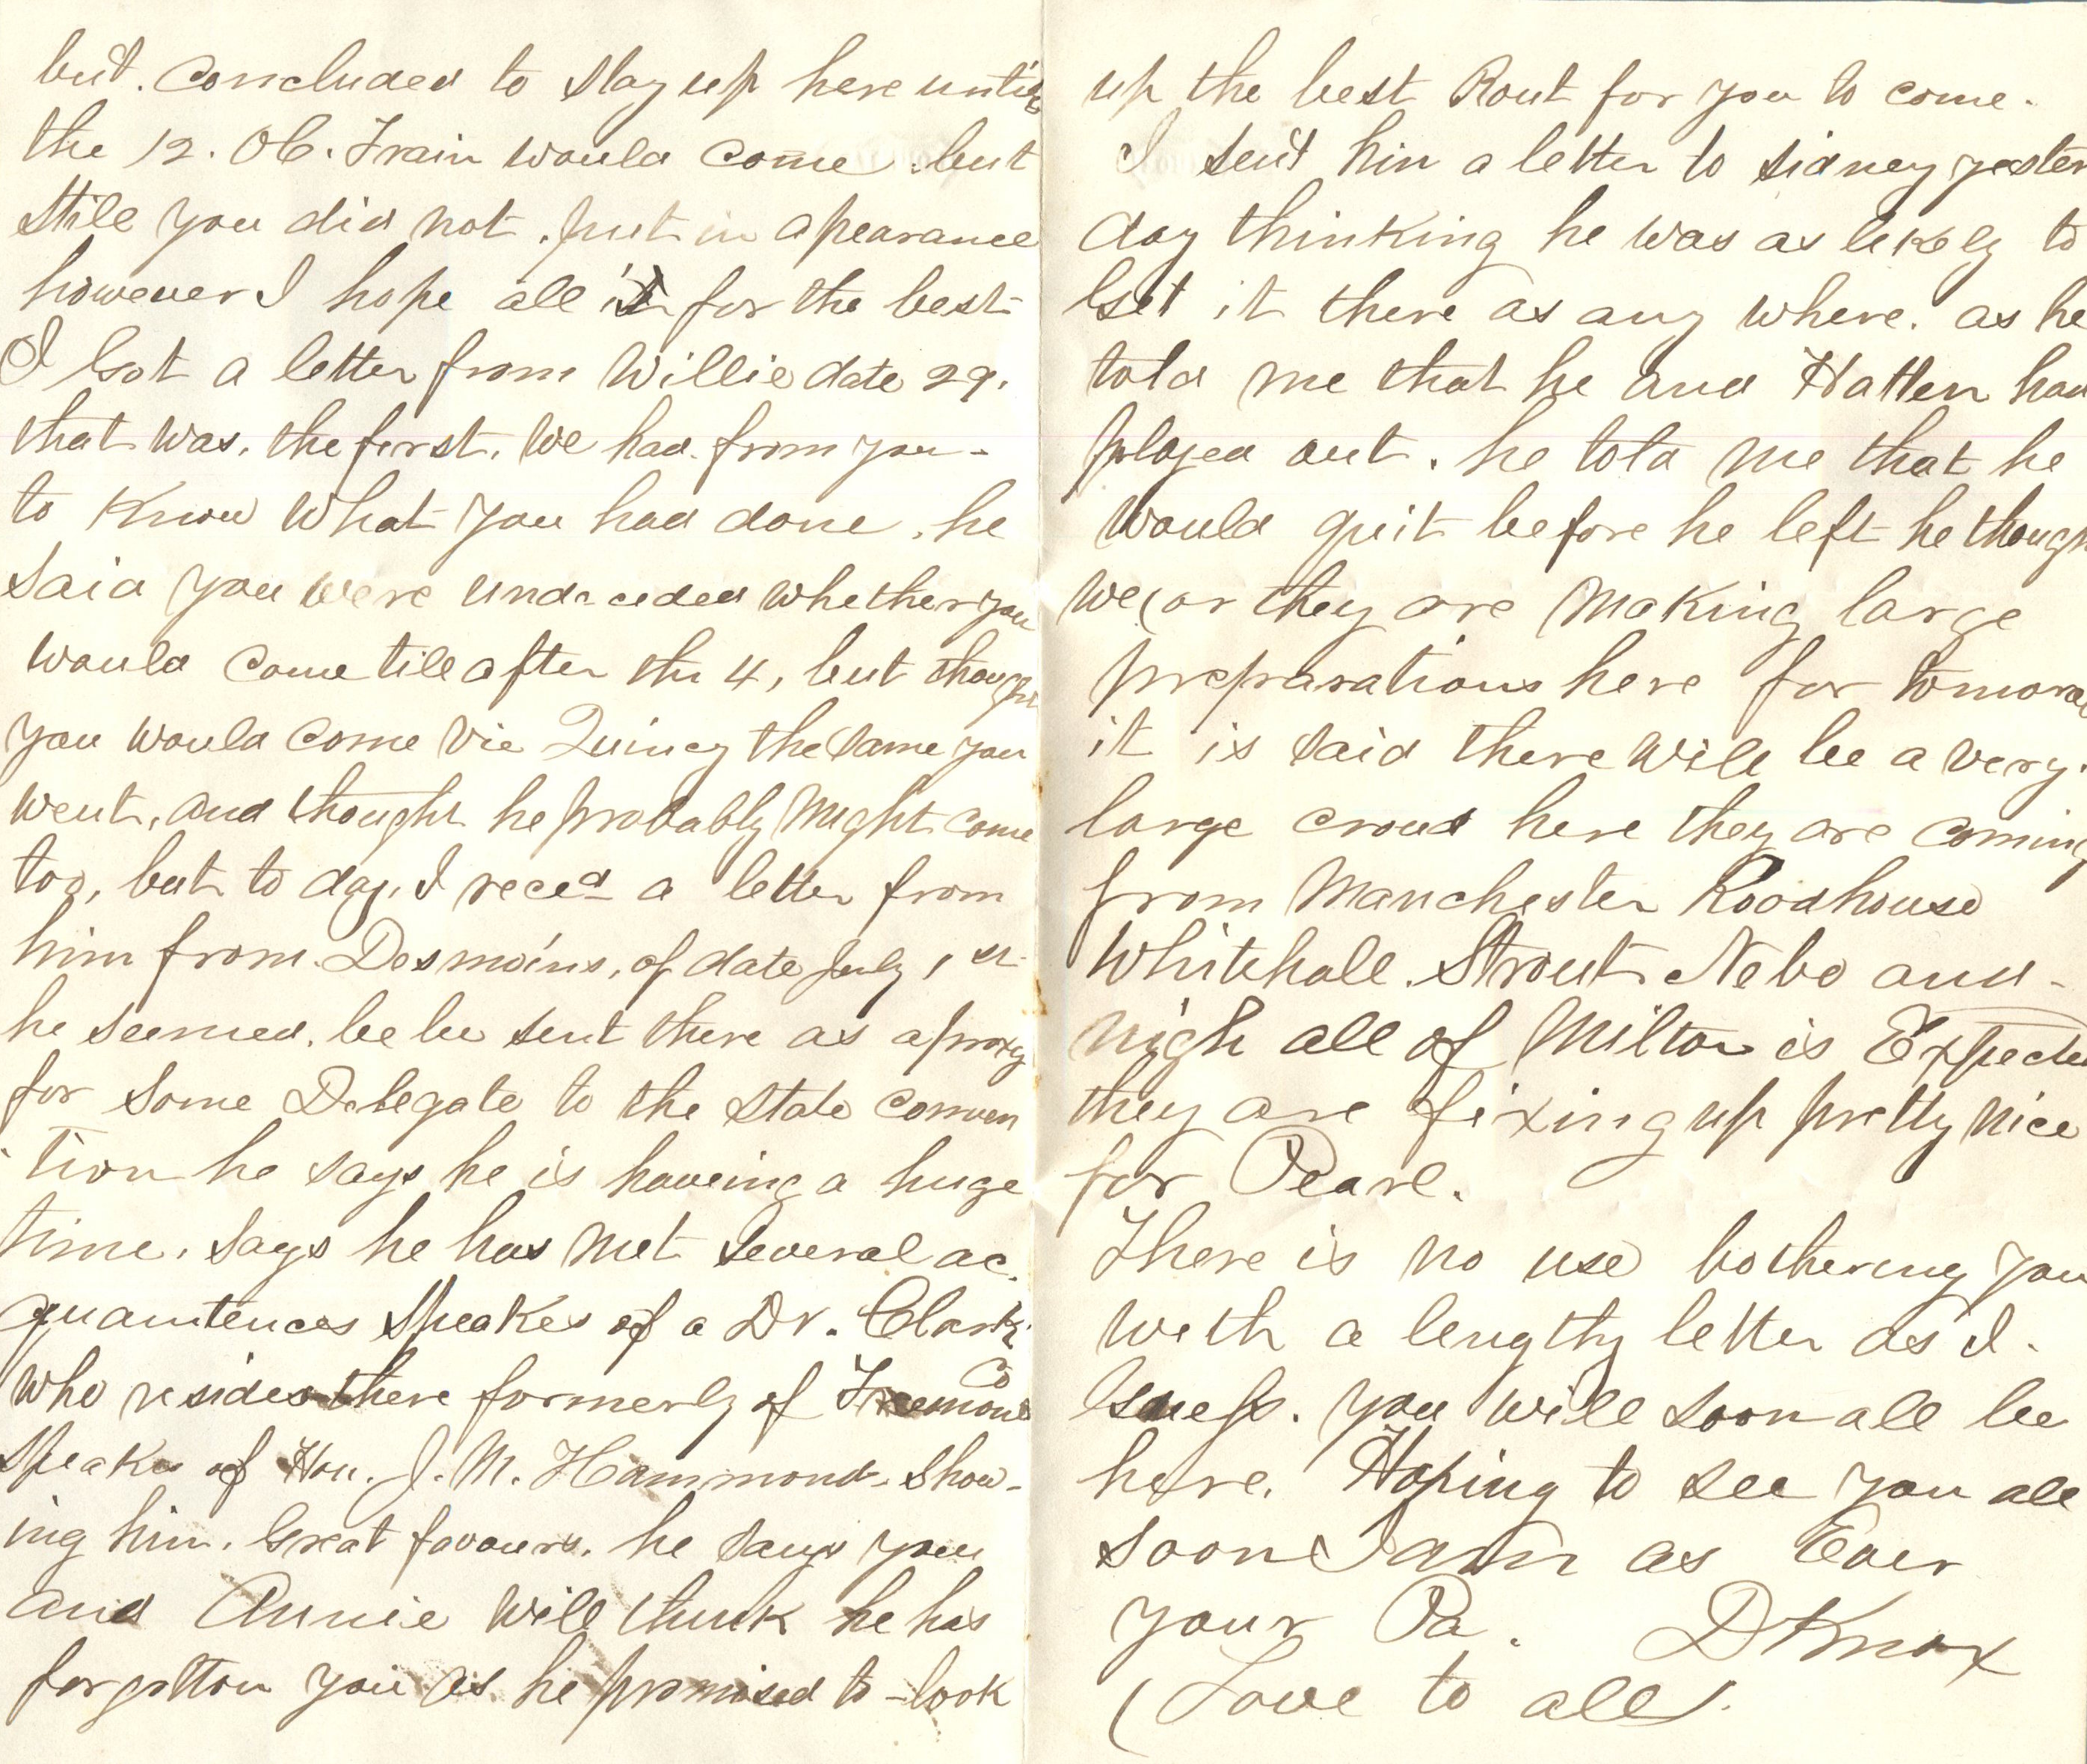 but. Concluded to stay up here until
the 12. Oc. Train would come. but
still you did not. put in apearance
however I hope all is for the best
I Got a letter from Willie date 29.
that was. the first. We had from you -
to Know What you had done. he
said you were undecided whether you
would come till after the 4, but thought
you would come via Quincy the same you
went, and thought he probably might come
too, but to day, I reced a letter from
him from. Desmoins, of date July 1st
he seemed. be be sent there as a proxy
for some Delegate to the State conven
tion he says he is haveing a huge
time. says he has met several ac.
quaintences speakes of a Dr. Clark
who resides there formerly of Freemont Co
speakes of Hon. J. M. Hammond - show-
ing him. Great favours. he says you
and Annie will think he has
forgotton you as he promised to - look
up the best Rout for you to come.
I sent him a letter to sidney yester
day thinking he was as likely to
Get it there as any where. as he
told me that he and Hatten had
played out. he told me that he
would quit before he left he thought
we, or they are making large
preparations here for tomorow
it is said there will be a very.
large croud here they are coming
from Manchester Roodhouse
Whitehall. Strout. Nebo and -
nigh all of Milton is Expected
they are fixing up pretty nice
for Pearl.
There is no use bothering you
with a lengthy letter as I.
Guess. you will soon all be
here. Hoping to see you all
soon I am as Ever
your Pa. D Knox
(Love to all).